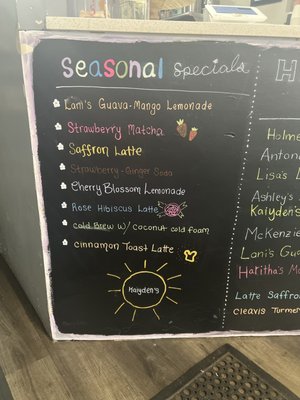 seasonal specials
Lani's Guava-Mango Lemonade
Strawberry Matcha
Saffron Latte
Strawberry-Ginger Soda
Cherry Blossom Lemonade
Rose Hibiscus Latte
cold Brew w/ coconut cold foam
cinnamon Toast Latte
Kaiyden's
H
Holme
Antoni
Lisa's L
Ashley's
Kaiyden's
McKenzie
Lani's Gua
Haritha's Ma
Latte Saffro
cleavis Turme